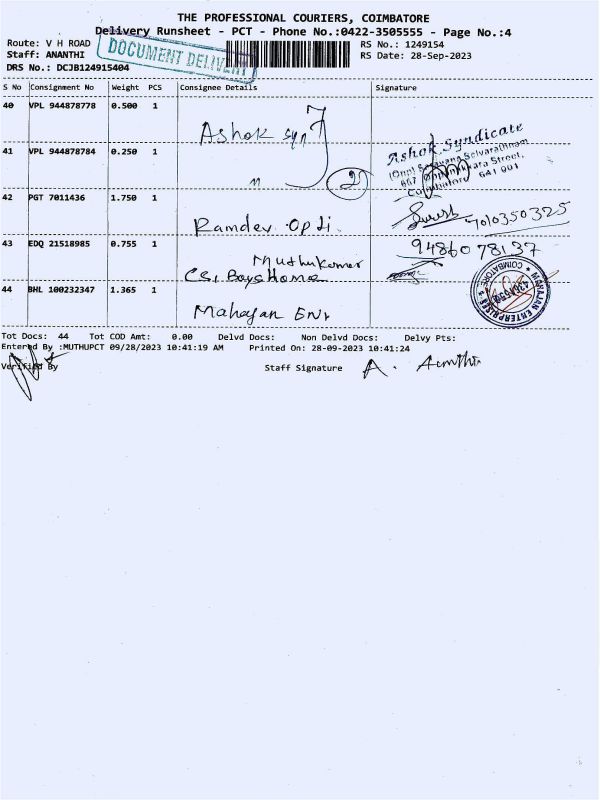 THE PROFESSIONAL COURIERS, COIMBATORE
Delivery Runsheet - PCT - Phone No.:0422-3505555 - Page No.:4
Route: V H ROAD
Staff: ANANTHI
DRS No.: DCJB124915404
DOCUMENT DELIVERY
RS No.: 1249154
RS Date: 28-Sep-2023
S No Consignment No Weight PCS Consignee Details Signature
40 VPL 944878778 0.500 1 Ashok syn
41 VPL 944878784 0.250 1 " 2
Ashok Syndicate
Street,
641 001
42 PGT 7011436 1.750 1 Ramdev Opti. Suresh 7010350325
43 EDQ 21518985 0.755 1 Muthukumar 9486078137
CSI Boys Home
44 BHL 100232347 1.365 1 Mahajan Ent
MAHAJAN ENTERPRISES
COIMBATORE
Tot Docs: 44 Tot COD Amt: 0.00 Delvd Docs: Non Delvd Docs: Delvy Pts:
Entered By :MUTHUPCT 09/28/2023 10:41:19 AM Printed On: 28-09-2023 10:41:24
Verified By Staff Signature A. Ananthi